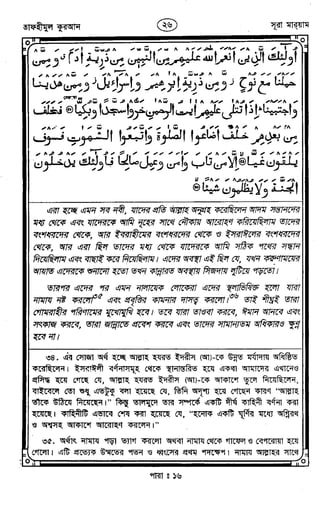 তাফহীমুল কুরআন
২৬
সূরা মারয়াম
أُولَٰئِكَ الَّذِينَ أَنْعَمَ اللَّهُ عَلَيْهِمْ مِنَ النَّبِيِّينَ مِنْ ذُرِّيَّةِ آدَمَ وَمِمَّنْ
حَمَلْنَا مَعَ نُوحٍ وَمِنْ ذُرِّيَّةِ إِبْرَاهِيمَ وَإِسْرَائِيلَ وَمِمَّنْ هَدَيْنَا
وَاجْتَبَيْنَا إِذَا تُتْلَىٰ عَلَيْهِمْ آيَاتُ الرَّحْمَٰنِ خَرُّوا سُجَّدًا وَبُكِيًّا ۝ فَخَلَفَ
مِنْ بَعْدِهِمْ خَلْفٌ أَضَاعُوا الصَّلَاةَ وَاتَّبَعُوا الشَّهَوَاتِ فَسَوْفَ
يَلْقَوْنَ غَيًّا ۝ إِلَّا مَنْ تَابَ وَآمَنَ وَعَمِلَ صَالِحًا فَأُولَٰئِكَ يَدْخُلُونَ
الْجَنَّةَ وَلَا يُظْلَمُونَ شَيْئًا ۝
এরা হচ্ছে এমন সব নবী, যাদের প্রতি আল্লাহ অনুগ্রহ করেছিলেন আদম সন্তানদের
মধ্য থেকে এবং যাদেরকে আমি নূহের সাথে নৌকায় আরোহণ করিয়েছিলাম তাদের
বংশধরদের থেকে, আর ইবরাহীমের বংশধরদের থেকে ও ইসরাঈলের বংশধরদের
থেকে, আর এরা ছিল তাদের মধ্য থেকে যাদেরকে আমি সঠিক পথের সন্ধান
দিয়েছিলাম এবং বাছাই করে নিয়েছিলাম। এদের অবস্থা এই ছিল যে, যখন করুণাময়ের
আয়াত এদেরকে শুনানো হতো তখন কান্নারত অবস্থায় সিজদায় লুটিয়ে পড়তো।
তারপর এদের পর এমন নালায়েক লোকেরা এদের স্থলাভিষিক্ত হলো যারা
নামায নষ্ট করলো৩৫ এবং প্রবৃত্তির কামনার দাসত্ব করলো। তাই শীঘ্রই তারা
গোমরাহীর পরিণামের মুখোমুখি হবে। তবে যারা তাওবা করবে, ঈমান আনবে এবং
সৎকাজ করবে, তারা জান্নাতে প্রবেশ করবে এবং তাদের সামান্যতম অধিকারও ক্ষুণ্ন
হবে না।
৩৪. এর সোজা অর্থ হচ্ছে আল্লাহ হযরত ইদরীস (আ)-কে উন্নত মর্যাদায় অধিষ্ঠিত
করেছিলেন। ইসরাঈলী বর্ণনাসমূহ থেকে স্থানান্তরিত হয়ে একথা আমাদের এখানেও
প্রসিদ্ধ হয়ে গেছে যে, আল্লাহ হযরত ইদরীস (আ)-কে আকাশে তুলে নিয়েছিলেন,
বাইবেলে তো শুধু এতটুকু বলা হয়েছে যে, তিনি অদৃশ্য হয়ে গেছেন কারণ "আল্লাহ
তাঁকে উঠিয়ে নিয়েছেন।" কিন্তু তালমূদে তার সম্পর্কে একটি দীর্ঘ কাহিনী বর্ণনা করা
হয়েছে। কাহিনীটি এভাবে শেষ করা হয়েছে যে, "হনোক একটি ঘূর্ণির মধ্যে অগ্নিরথ
ও অশ্বসহ আকাশে আরোহণ করলেন।"
৩৫. অর্থাৎ নামায পড়া ত্যাগ করলো অথবা নামায থেকে গাফেল ও বেপরোয়া হয়ে
গেলো। এটি প্রত্যেক উম্মতের পতন ও ধ্বংসের প্রথম পদক্ষেপ। নামায আল্লাহর সাথে
পারা : ১৬